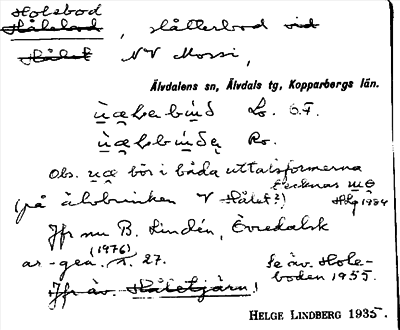 Holebod
Hålebod, slåtterbod vid
Hålet NV Mossi,
Älvdalens sn, Älvdals tg, Kopparbergs län.
Lo. G.F.
Ro.
Obs. bör i båda uttalsformerna
tecknas
(på älvbrinken V Hålet?) Hlg 1984
Jfr nu B. Lindén, Evredalsk
(1976)
ar-gen. s. 27. Se äv. Hole-
boden 1955.
Jfr äv. Håletjärn!
HELGE LINDBERG 1935.